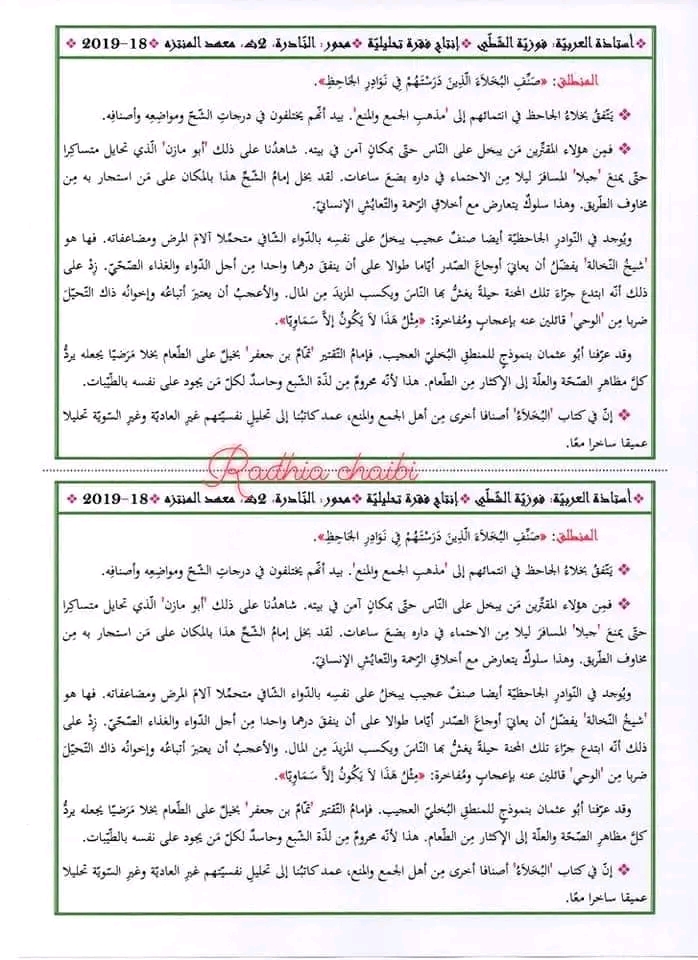 ❖ أستاذة العربيّة: فوزيّة الشّطّي ❖ إنتاج فقرة تحليليّة ❖ محور: النّادرة، 2ث، معهد المنتزه ❖ 18-2019 ❖
المنطلق: «صَنِّفِ البُخَلاَءَ الّذِينَ دَرَسْتَهُمْ فِي نَوَادِرِ الجَاحِظِ».
❖ يَتّفقُ بخلاءُ الجاحظ في انتمائهم إلى 'مذهبِ الجمع والمنع'. بيد أنّهم يختلفون في درجاتِ الشّحّ ومواضعِه وأصنافِه.
❖ فمِن هؤلاء المقتِّرين مَن يبخل على النّاس حتّى بمكانٍ آمن في بيته. شاهدُنا على ذلك 'أبو مازن' الّذي تحايل متساكِرا
حتّى يمنعَ 'جبلا' المسافرَ ليلا مِن الاحتماء في داره بضعَ ساعات. لقد بخل إمامُ الشّحِّ هذا بالمكان على مَن استجار به مِن
مخاوف الطّريق. وهذا سلوكٌ يتعارض مع أخلاقِ الرّحمة والتّعايُشِ الإنسانيّ.
ويُوجد في النّوادر الجاحظيّة أيضا صنفٌ عجيب يبخلُ على نفسِه بالدّواء الشّافي متحمِّلا آلامَ المرض ومضاعفاتِه. فها هو
'شيخُ النّخالة' يفضّلُ أن يعانيَ أوجاعَ الصّدر أيّاما طوالا على أن ينفقَ درهما واحدا مِن أجل الدّواء والغذاء الصّحّيّ. زِدْ على
ذلك أنّه ابتدع جرّاءَ تلك المحنة حيلةً يغشُّ بها النّاسَ ويكسب المزيدَ مِن المال. والأعجبُ أن يعتبرَ أتباعُه وإخوانُه ذاك التّحيّلَ
ضربا مِن 'الوحي' قائلين عنه بإعجابٍ ومُفاخرة: «مِثْلُ هَذَا لاَ يَكُونُ إلاَّ سَمَاوِيًّا».
وقد عرّفنا أبُو عثمان بنموذجٍ للمنطقِ البُخليِّ العجيب. فإمامُ التّقتير 'تمّامُ بن جعفر' بخيلٌ على الطّعام بخلا مَرَضيّا يجعله يردُّ
كلَّ مظاهرِ الصّحّة والعلّة إلى الإكثار مِن الطّعام. هذا لأنّه محرومٌ مِن لذّة الشّبع وحاسدٌ لكلّ مَن يجود على نفسه بالطّيّبات.
❖ إنّ في كتاب 'البُخَلاَءُ' أصنافا أخرى مِن أهل الجمع والمنع، عمد كاتبُنا إلى تحليلِ نفسيّتهم غيرِ العاديّة وغيرِ السّويّة تحليلا
عميقا ساخرا معًا.
Radhia chaibi
❖ أستاذة العربيّة: فوزيّة الشّطّي ❖ إنتاج فقرة تحليليّة ❖ محور: النّادرة، 2ث، معهد المنتزه ❖ 18-2019 ❖
المنطلق: «صَنِّفِ البُخَلاَءَ الّذِينَ دَرَسْتَهُمْ فِي نَوَادِرِ الجَاحِظِ».
❖ يَتّفقُ بخلاءُ الجاحظ في انتمائهم إلى 'مذهبِ الجمع والمنع'. بيد أنّهم يختلفون في درجاتِ الشّحّ ومواضعِه وأصنافِه.
❖ فمِن هؤلاء المقتِّرين مَن يبخل على النّاس حتّى بمكانٍ آمن في بيته. شاهدُنا على ذلك 'أبو مازن' الّذي تحايل متساكِرا
حتّى يمنعَ 'جبلا' المسافرَ ليلا مِن الاحتماء في داره بضعَ ساعات. لقد بخل إمامُ الشّحِّ هذا بالمكان على مَن استجار به مِن
مخاوف الطّريق. وهذا سلوكٌ يتعارض مع أخلاقِ الرّحمة والتّعايُشِ الإنسانيّ.
ويُوجد في النّوادر الجاحظيّة أيضا صنفٌ عجيب يبخلُ على نفسِه بالدّواء الشّافي متحمِّلا آلامَ المرض ومضاعفاتِه. فها هو
'شيخُ النّخالة' يفضّلُ أن يعانيَ أوجاعَ الصّدر أيّاما طوالا على أن ينفقَ درهما واحدا مِن أجل الدّواء والغذاء الصّحّيّ. زِدْ على
ذلك أنّه ابتدع جرّاءَ تلك المحنة حيلةً يغشُّ بها النّاسَ ويكسب المزيدَ مِن المال. والأعجبُ أن يعتبرَ أتباعُه وإخوانُه ذاك التّحيّلَ
ضربا مِن 'الوحي' قائلين عنه بإعجابٍ ومُفاخرة: «مِثْلُ هَذَا لاَ يَكُونُ إلاَّ سَمَاوِيًّا».
وقد عرّفنا أبُو عثمان بنموذجٍ للمنطقِ البُخليِّ العجيب. فإمامُ التّقتير 'تمّامُ بن جعفر' بخيلٌ على الطّعام بخلا مَرَضيّا يجعله يردُّ
كلَّ مظاهرِ الصّحّة والعلّة إلى الإكثار مِن الطّعام. هذا لأنّه محرومٌ مِن لذّة الشّبع وحاسدٌ لكلّ مَن يجود على نفسه بالطّيّبات.
❖ إنّ في كتاب 'البُخَلاَءُ' أصنافا أخرى مِن أهل الجمع والمنع، عمد كاتبُنا إلى تحليلِ نفسيّتهم غيرِ العاديّة وغيرِ السّويّة تحليلا
عميقا ساخرا معًا.